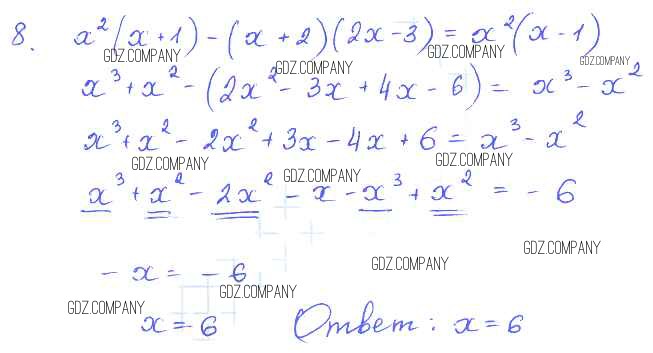 8. x²(x+1) - (x+2)(2x-3) = x²(x-1)
GDZ.COMPANY GDZ.COMPANY GDZ.COMPANY GDZ.COMPANY
x³+x² - (2x² - 3x + 4x - 6) = x³ - x²
x³+x² - 2x² + 3x - 4x + 6 = x³ - x²
GDZ.COMPANY GDZ.COMPANY GDZ.COMPANY
x³ + x² - 2x² - x - x³ + x² = - 6
GDZ.COMPANY GDZ.COMPANY
- x = - 6
GDZ.COMPANY GDZ.COMPANY
x = 6 Ответ: x = 6